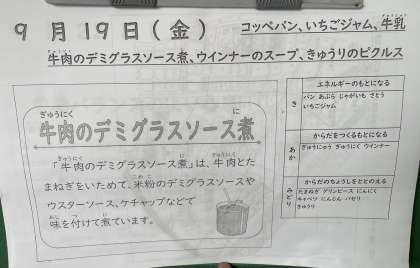 9月19日(金) コッペパン、いちごジャム、牛乳
牛肉のデミグラスソース煮、ウインナーのスープ、きゅうりのピクルス
ぎゅうにく に
牛肉のデミグラスソース煮
ぎゅうにく に ぎゅうにく
「牛肉のデミグラスソース煮」は、牛肉とた
こめこ
まねぎをいためて、米粉のデミグラスソースや
ウスターソース、ケチャップなどで
あじ つ に
味を付けて煮ています。
エネルギーのもとになる
き
パン あぶら じゃがいも さとう
いちごジャム
からだをつくるもとになる
あか
ぎゅうにゅう ぎゅうにく ウインナー
からだのちょうしをととのえる
みどり
たまねぎ グリンピース にんにく
キャベツ にんじん パセリ
きゅうり